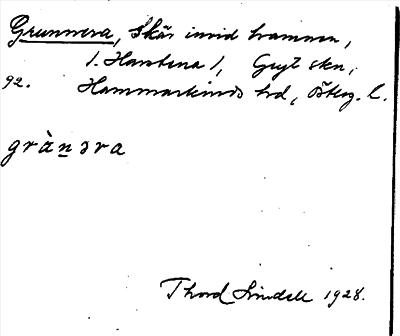 Grunnera, Skär invid hamnen,
1. Harstena 1, Gryt skn,
92. Hammarkinds hd, Östерg. l.
gràṉəra
Thord Lindell 1928.